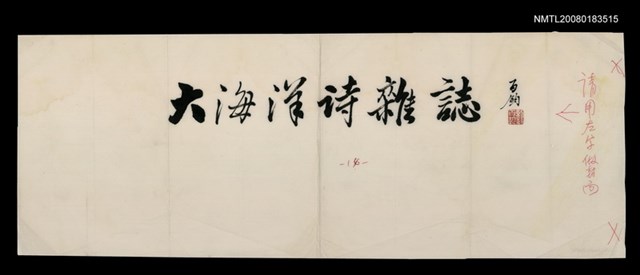 NMTL20080183515
大海洋诗雜誌
請用左字做封面